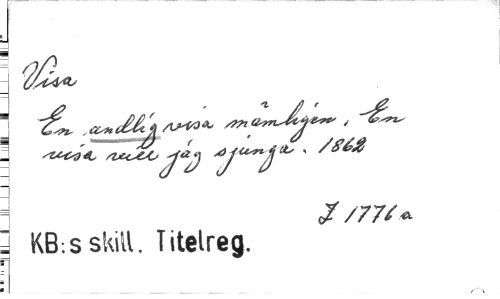 Visa
En andlig visa nämligen. En
visa vill jag sjunga. 1862
J 1776 a
KB:s skill. Titelreg.